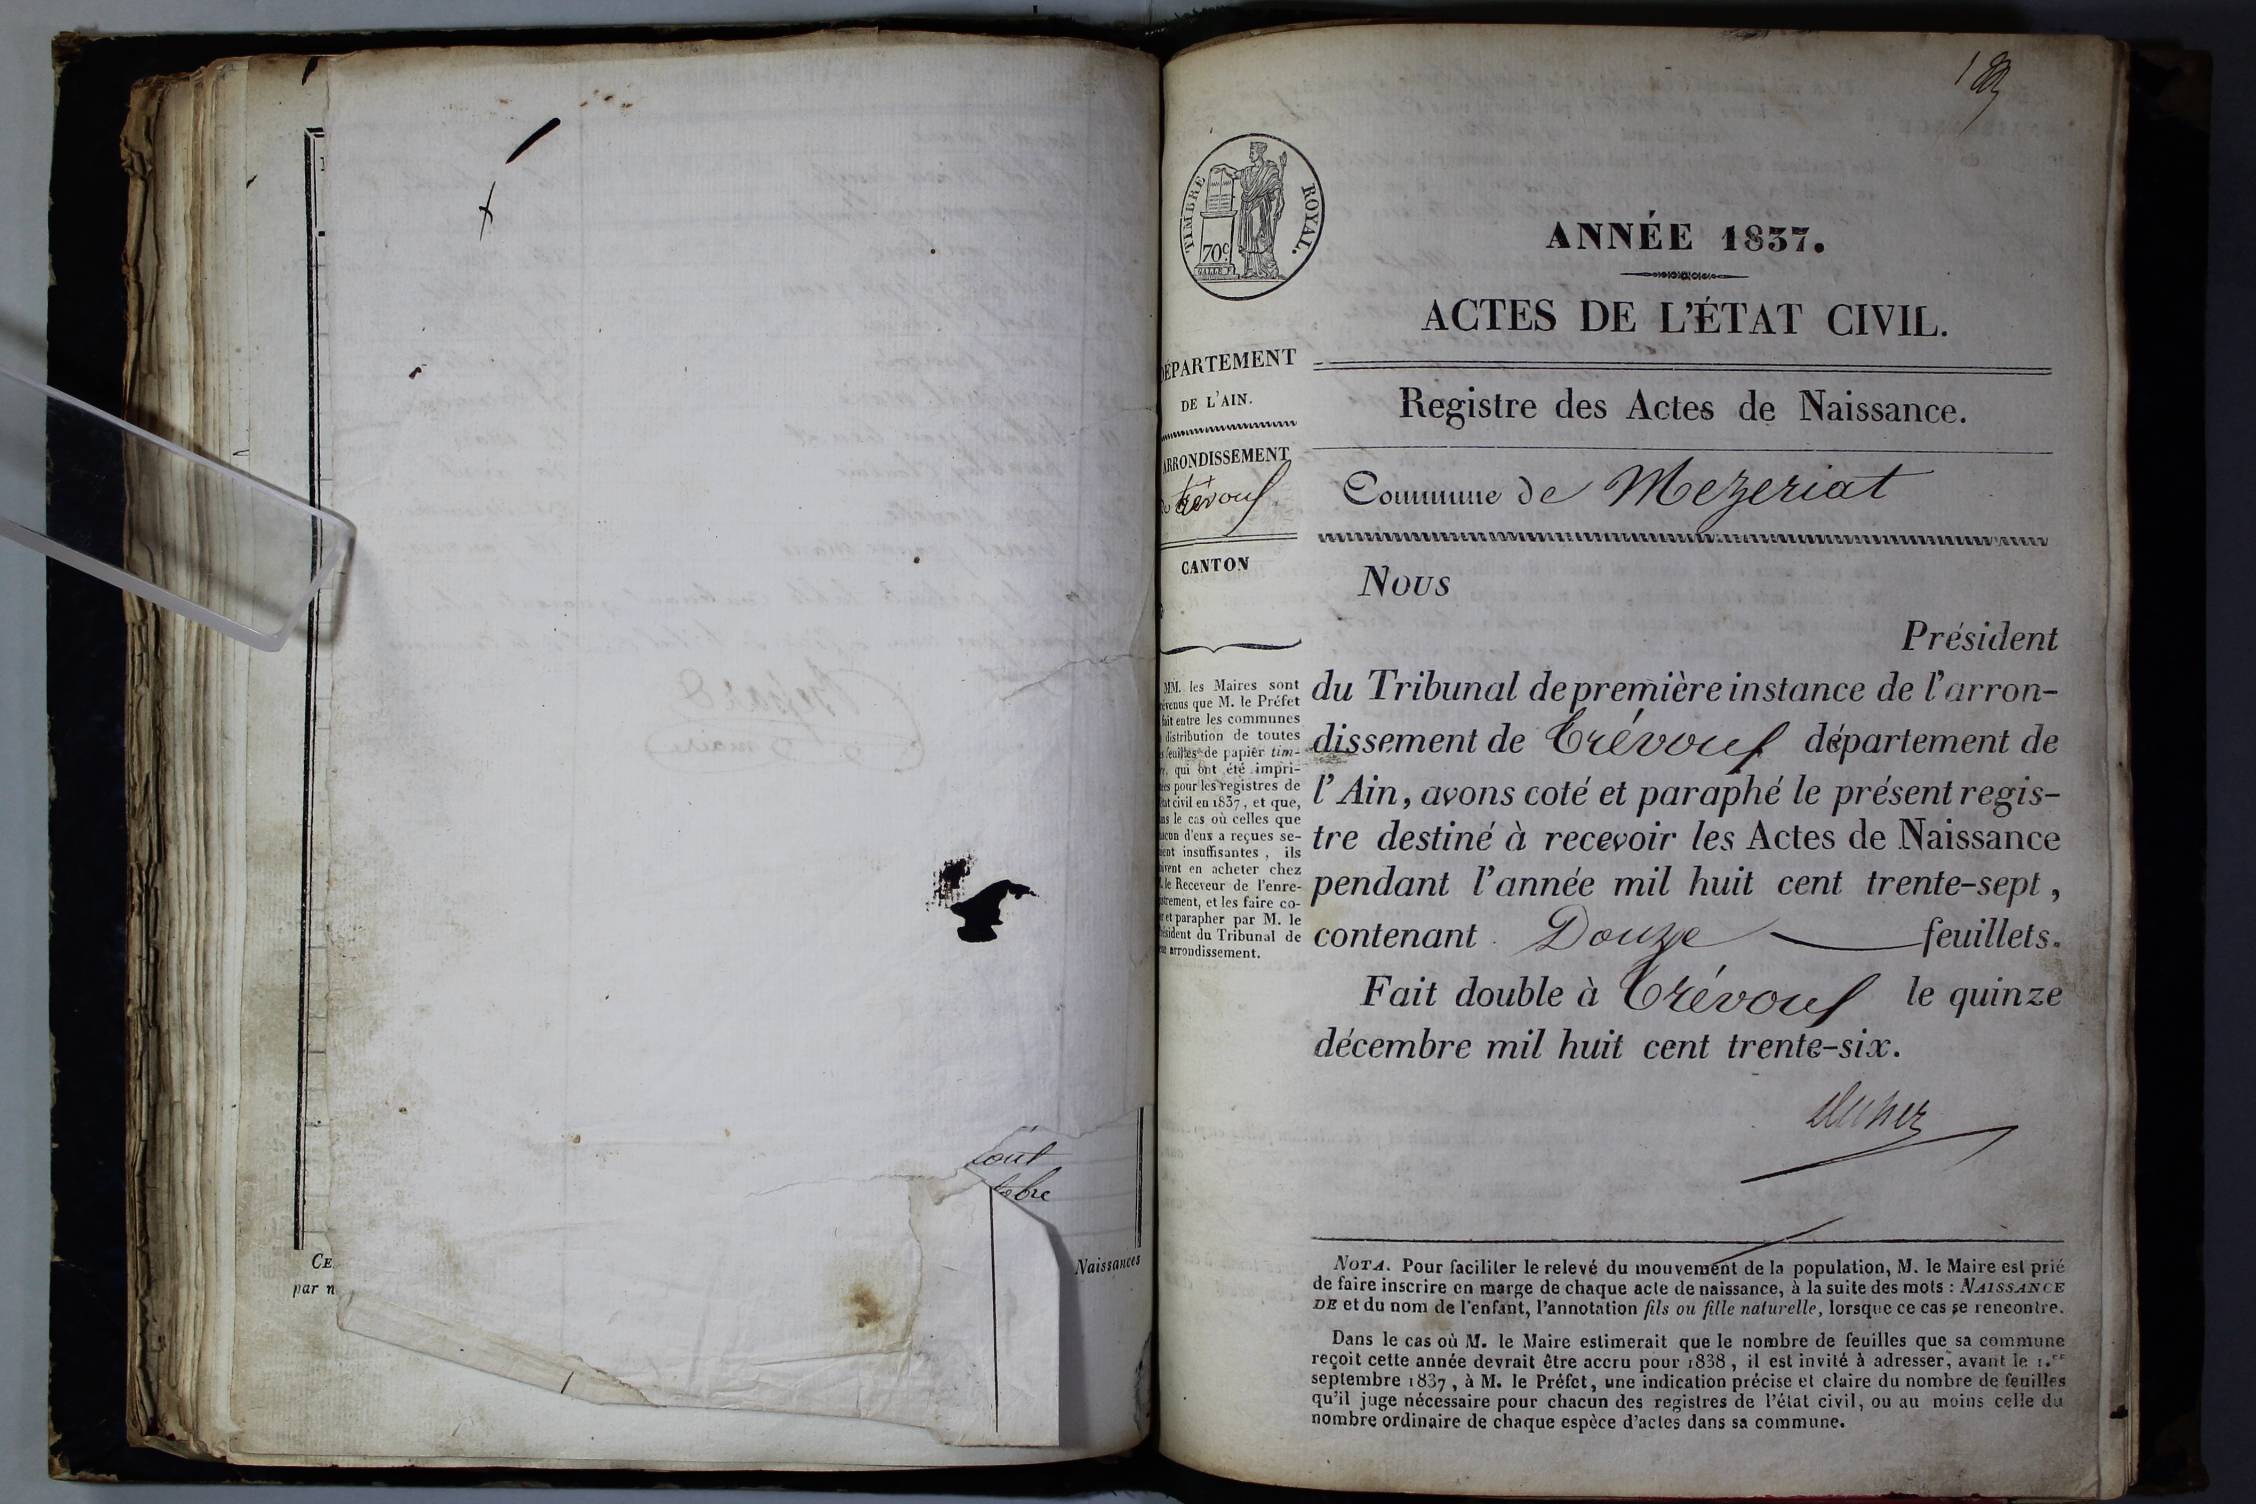 out
bre
CE
par
Naissances
TIMBRE ROYAL.
70 c.
ANNÉE 1837.
ACTES DE L'ÉTAT CIVIL.
DÉPARTEMENT
DE L'AIN.
ARRONDISSEMENT
Trévoux
CANTON
Registre des Actes de Naissance.
Commune de Mezeriat
Nous
Président
du Tribunal de première instance de l'arron-
dissement de Trévoux département de
l'Ain, avons coté et paraphé le présent regis-
tre destiné à recevoir les Actes de Naissance
pendant l'année mil huit cent trente-sept,
contenant Douze feuillets.
Fait double à Trévoux le quinze
décembre mil huit cent trente-six.
MM. les Maires sont
évenus que M. le Préfet
fait entre les communes
distribution de toutes
s feuilles de papier tim-
qui ont été impri-
ées pour les registres de
état civil en 1837, et que,
ns le cas où celles que
acun d'eux a reçues se-
ient insuffisantes, ils
oivent en acheter chez
le Receveur de l'enre-
strement, et les faire co-
r et parapher par M. le
ésident du Tribunal de
arrondissement.
NOTA. Pour faciliter le relevé du mouvement de la population, M. le Maire est prié
de faire inscrire en marge de chaque acte de naissance, à la suite des mots : NAISSANCE
DE et du nom de l'enfant, l'annotation fils ou fille naturelle, lorsque ce cas se rencontre.
Dans le cas où M. le Maire estimerait que le nombre de feuilles que sa commune
reçoit cette année devrait être accru pour 1838, il est invité à adresser, avant le 1.er
septembre 1837, à M. le Préfet, une indication précise et claire du nombre de feuilles
qu'il juge nécessaire pour chacun des registres de l'état civil, ou au moins celle du
nombre ordinaire de chaque espèce d'actes dans sa commune.